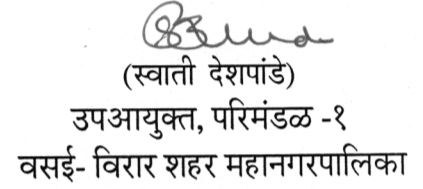 (स्वाती देशपांडे)
उपआयुक्त, परिमंडळ -१
वसई- विरार शहर महानगरपालिका